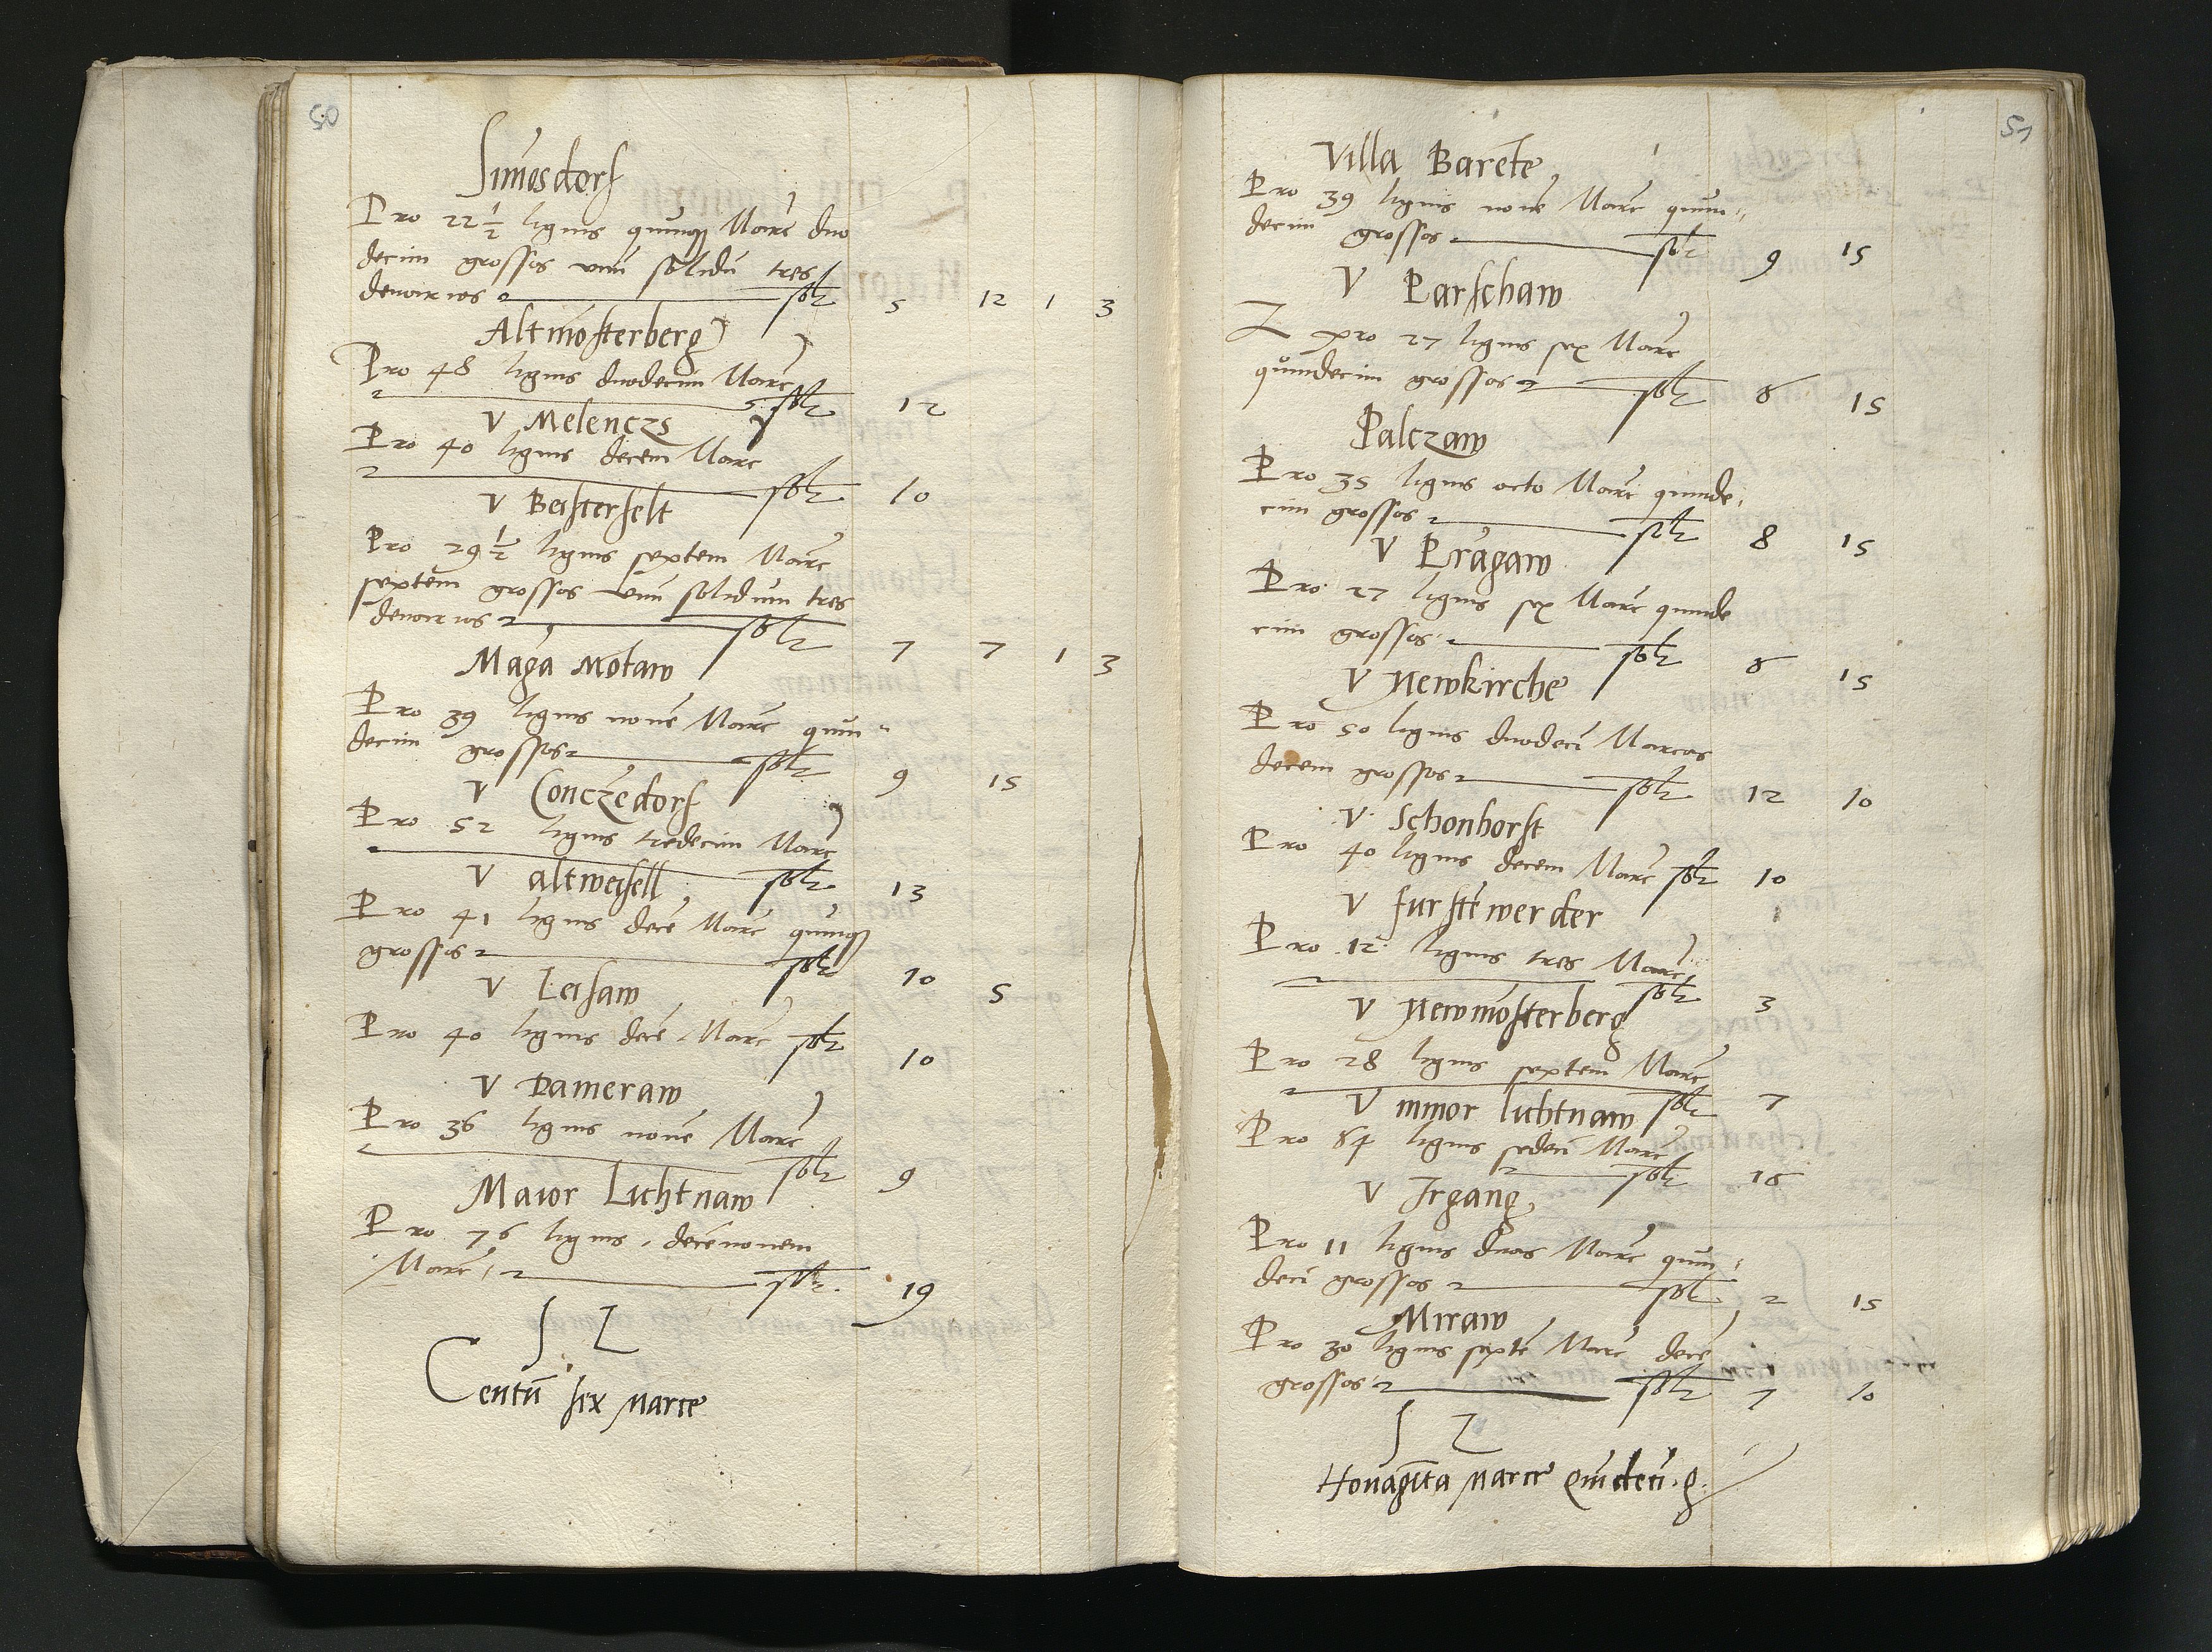 50
Simesdorf
Pro 22 1/2 lignis quinqȝ Marc duo
decim grossos unū solidū tres
denarios solt 5 12 1 3
Altmosterberg
Pro 48 lignis duodecim Marc
solt 12
V Melenczs
Pro 40 lignis decem Marc
solt 10
V Beisterfelt
Pro 29 1/2 lignis septem Marc
septem grossos unū solidum tres
denarios solt 7 7 1 3
Maga Motaw
Pro 39 lignis novē Marc quin
decim grossos solt 9 15
V Conczedorf
Pro 52 lignis tredecim Marc
solt 13
V altweisell
Pro 41 lignis decē Marc quinqȝ
grossos solt 10 5
V Leisaw
Pro 40 lignis decē Marc solt 10
V Dameraw
Pro 36 lignis novē Marc
solt 9
Maior Lichtnaw
Pro 76 lignis decēnovem
Marc solt 19
Centū sex Marce
51
Villa Barēte
Pro 39 lignis novē Marc quin
decim grossos solt 9 15
V Parschaw
pro 27 lignis sex Marc
quindecim grossos solt 6 15
Palczaw
Pro 35 lignis octo Marc quinde
cim grossos solt 8 15
V Pragaw
Pro 27 lignis sex Marc quinde
cim grossos solt 6 15
V Newkirche
Pro 50 lignis duodeci Marcas
decem grossos solt 12 10
V Schonhorst
Pro 40 lignis decem Marc solt 10
V furstēwerder
Pro 12 lignis tres Marc
solt 3
V Newmosterberg
Pro 28 lignis septem Marc
solt 7
V minor lichtnaw
Pro 64 lignis sedeci Marc
solt 16
V Irgang
Pro 11 lignis duas Marc quin
deci grossos solt 2 15
Miraw
Pro 30 lignis septē Marc decē
grossos solt 7 10
Nonagīta Marce Quideci g